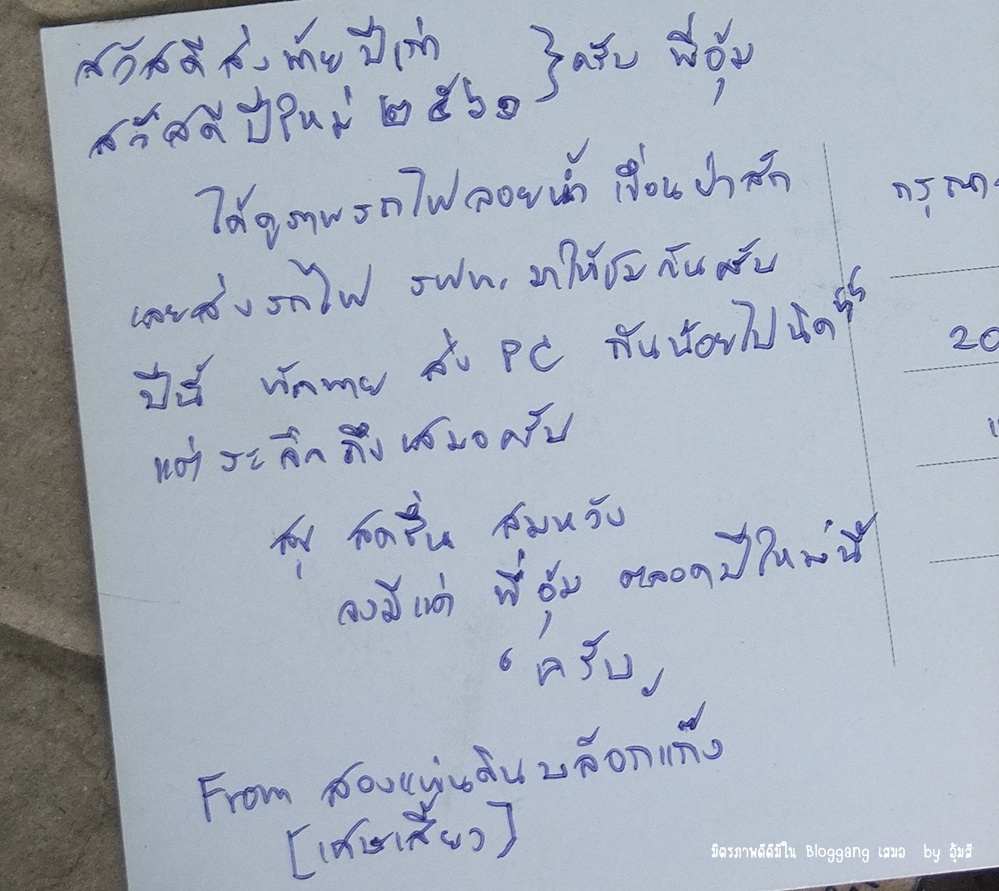 สวัสดีส่งท้ายปีเก่า
สวัสดีปีใหม่ ๒๕๖๑ } ครับ พี่อุ้ม
ได้ดูภาพรถไฟลอยน้ำ เขื่อนป่าสัก
เลยส่งรถไฟ รฟท. มาให้ชมกันครับ
ปีนี้ ทักทาย ส่ง PC กันน้อยไปนิด
แต่ระลึกถึงเสมอครับ
สุข สดชื่น สมหวัง
จงมีแด่ พี่อุ้ม ตลอดปีใหม่นี้
ครับ
From สองแผ่นดินบล็อกแก๊ง
[เศษเสี้ยว]
กรุณา
20
มิตรภาพดีดีมีใน Bloggang เสมอ by อุ้มสี